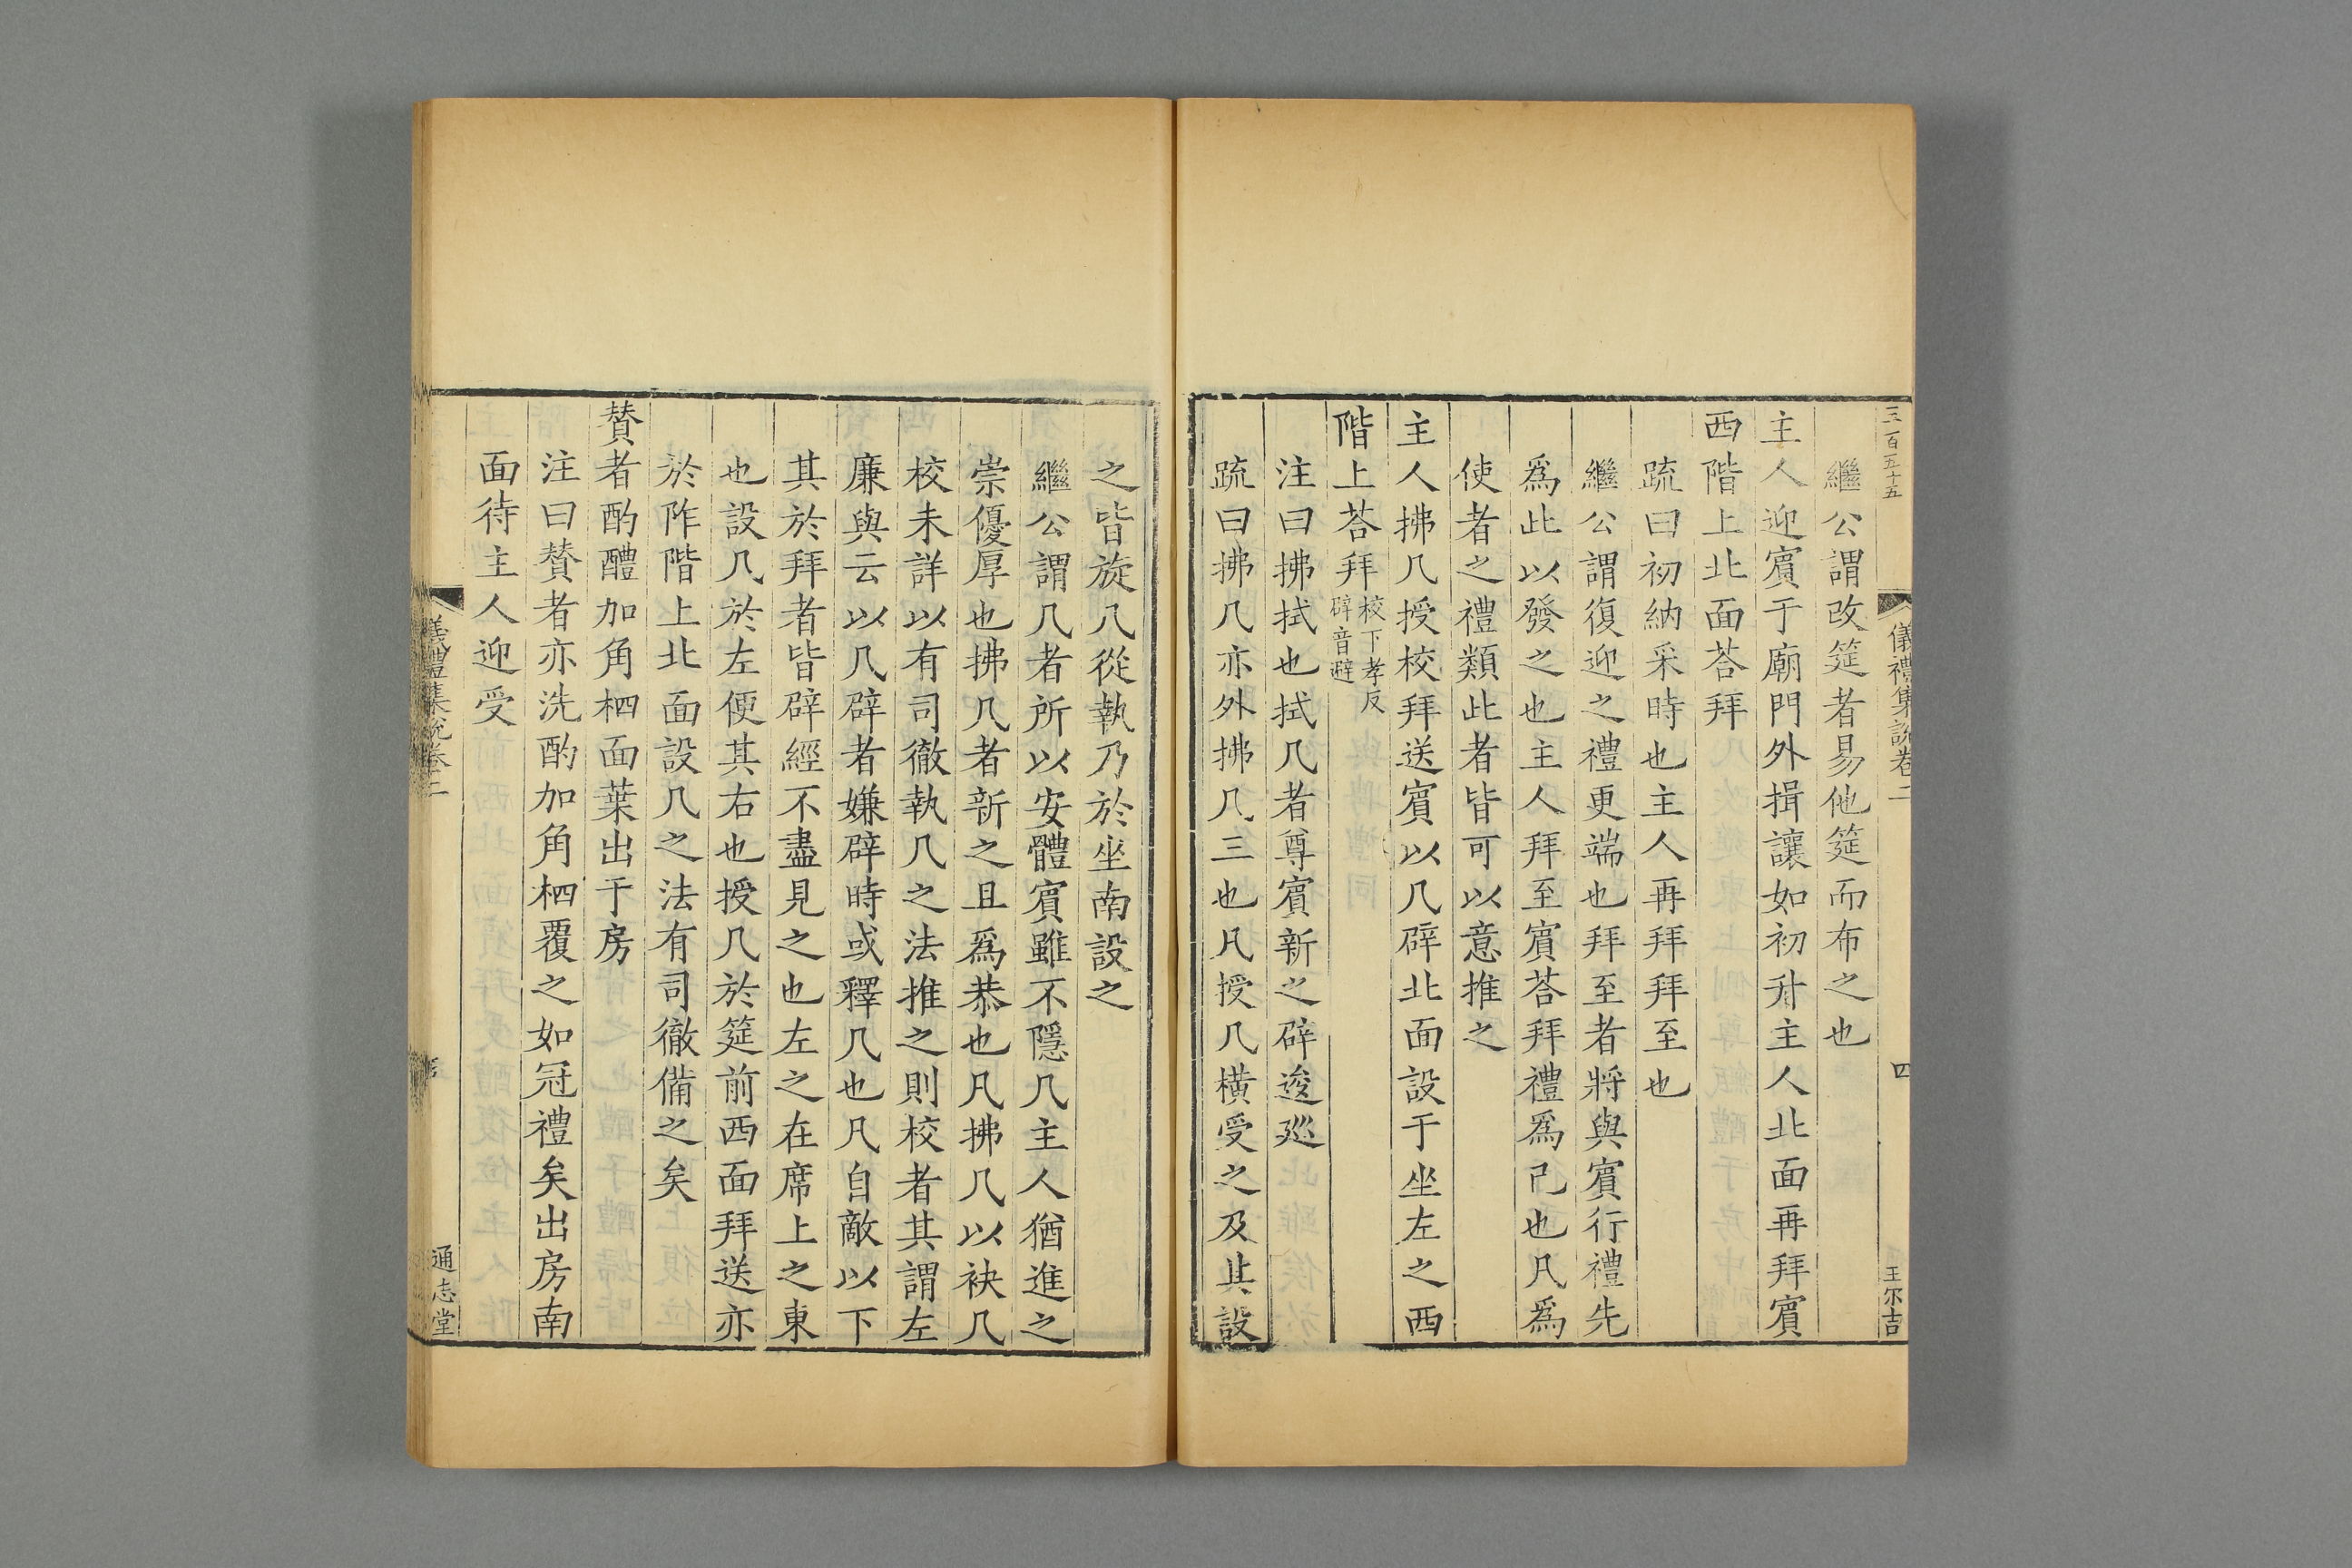 三百五十五
儀禮集說卷二
四
王尔吉
繼公謂改筵者易他筵而布之也
主人迎賓于廟門外揖讓如初升主人北面再拜賓
西階上北面荅拜
疏曰初納采時也主人再拜拜至也
繼公謂復迎之禮更端也拜至者將與賓行禮先
爲此以發之也主人拜至賓荅拜禮爲已也凡爲
使者之禮類此者皆可以意推之
主人拂几授校拜送賓以几辟北面設于坐左之西
階上荅拜校下孝反辟音避
注曰拂拭也拭几者尊賓新之辟逡巡
疏曰拂几亦外拂几三也凡授几橫受之及其設
之皆旋几從執乃於坐南設之
繼公謂几者所以安體賓雖不隱几主人猶進之
崇優厚也拂几者新之且爲恭也凡拂几以袂几
校未詳以有司徹執几之法推之則校者其謂左
廉與云以几辟者嫌辟時或釋几也凡自敵以下
其於拜者皆辟經不盡見之也左之在席上之東
也設几於左便其右也授几於筵前西面拜送亦
於阼階上北面設几之法有司徹備之矣
贊者酌醴加角柶面葉出于房
注曰贊者亦洗酌加角柶覆之如冠禮矣出房南
面待主人迎受
儀禮集說卷二
通志堂